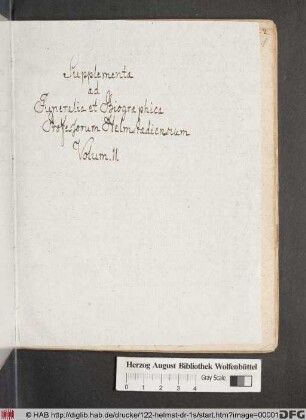 Supplementa
ad
Funeralia et Biographica
Professorum Helmstadiensium
Volum. II
Herzog August Bibliothek Wolfenbüttel
Gray Scale
0 1 2 3 4
© HAB http://diglib.hab.de/drucke/122-helmst-dr-1s/start.htm?image=00001
DFG